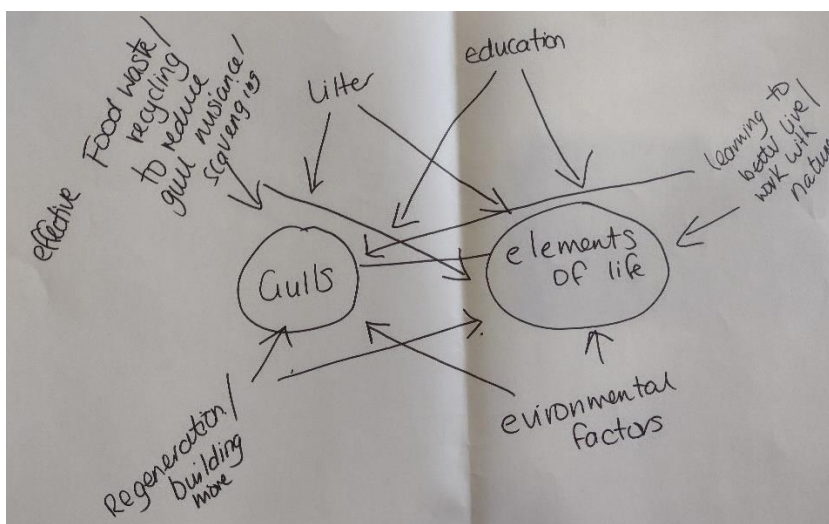 effective Food waste/
recycling
to reduce
gull nusiance/
scavenging
litter
education
learning to
better live/
work with
nature
Gulls
elements
of life
Regeneration/
building
more
evironmental
factors